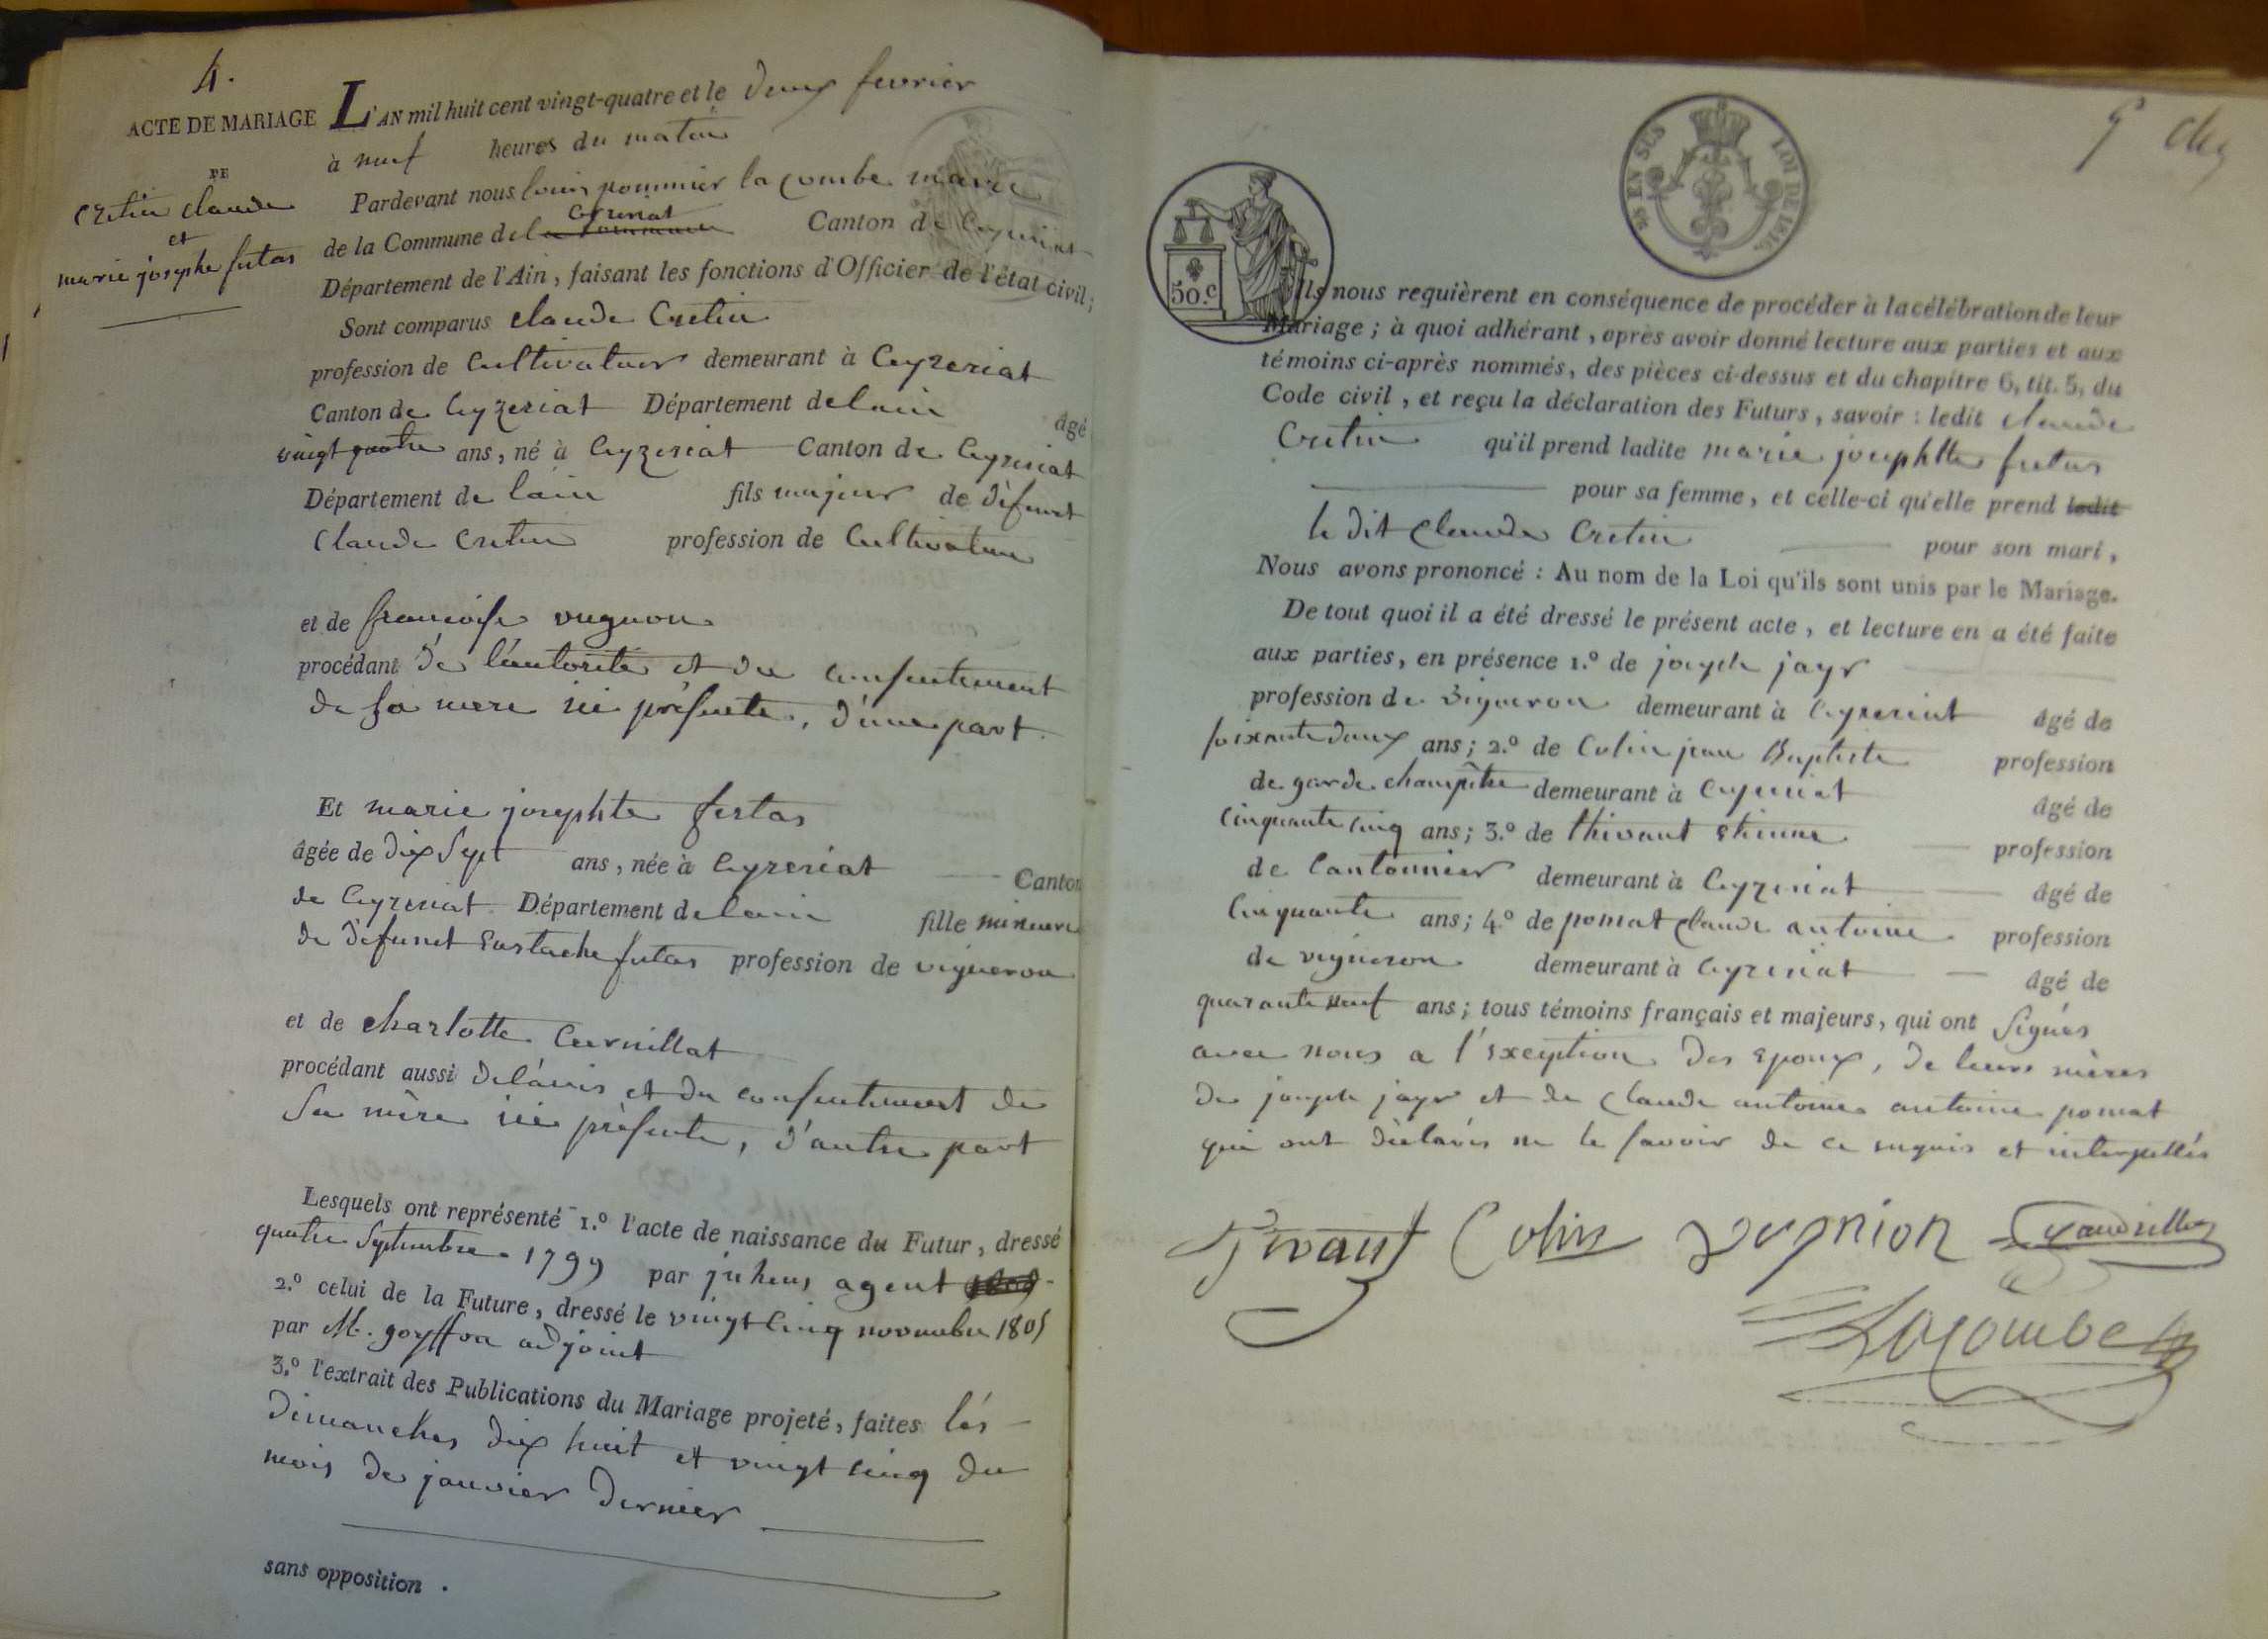 4.
ACTE DE MARIAGE
DE
Cretin claude
et
marie josephe futas
L'AN mil huit cent vingt-quatre et le deux fevrier
à neuf heures du matin
Pardevant nous louis pommier la combe maire
ceyzeriat
de la Commune de la commune Canton de Ceyzeriat
Département de l'Ain, faisant les fonctions d'Officier de l'état civil;
Sont comparus claude Cretin
profession de Cultivateur demeurant à Ceyzeriat
Canton de Ceyzeriat Département de lain âgé
vingt quatre ans, né à Ceyzeriat Canton de Ceyzeriat
Département de lain fils majeur de défunt
Claude Cretin profession de Cultivateur
et de francoise vugnon
procédant de l'autorité et du consentement
de sa mere ici présente, d'une part.
Et marie josephte festas
âgée de dix sept ans, née à Ceyzeriat Canton
de Ceyzeriat Département de lain fille mineure
de défunt Eustache futas profession de vigneron
et de charlotte Curnillat
procédant aussi de l'avis et du consentement de
sa mère ici présente, d'autre part
Lesquels ont représenté 1.º l'acte de naissance du Futur, dressé
quatre Septembre 1799 par juhens agent
2.º celui de la Future, dressé le vingt cinq novembre 1805
par M. goyffon adjoint
3.º l'extrait des Publications du Mariage projeté, faites lés
dimanches dix huit et vingt cinq du
mois de janvier dernier
sans opposition.
50.c
EN SUS
LOI DE 1816.
Ils nous requièrent en conséquence de procéder à la célébration de leur
Mariage; à quoi adhérant, après avoir donné lecture aux parties et aux
témoins ci-après nommés, des pièces ci-dessus et du chapitre 6, tit. 5, du
Code civil, et reçu la déclaration des Futurs, savoir: ledit claude
Cretin qu'il prend ladite marie josephtte futas
pour sa femme, et celle-ci qu'elle prend ledit
le dit Claude Cretin pour son mari,
Nous avons prononcé: Au nom de la Loi qu'ils sont unis par le Mariage.
De tout quoi il a été dressé le présent acte, et lecture en a été faite
aux parties, en présence 1.º de joseph jayr
profession de vigneron demeurant à Ceyzeriat âgé de
soixante deux ans; 2.º de Colin jean Baptiste profession
de garde champêtre demeurant à Ceyzeriat âgé de
Cinquante cinq ans; 3.º de thivaut etienne profession
de Cantonnier demeurant à Ceyzeriat âgé de
Cinquante ans; 4.º de pomat Claude antoine profession
de vigneron demeurant à Ceyzeriat âgé de
quarante neuf ans; tous témoins français et majeurs, qui ont signés
avec nous a l'exception des epoux, de leurs mères
de joseph jayr et de claude antoine antoine pomat
qui ont déclarés ne le savoir de ce requis et interpellés
Tivaut Colin vugnion
Lacombe